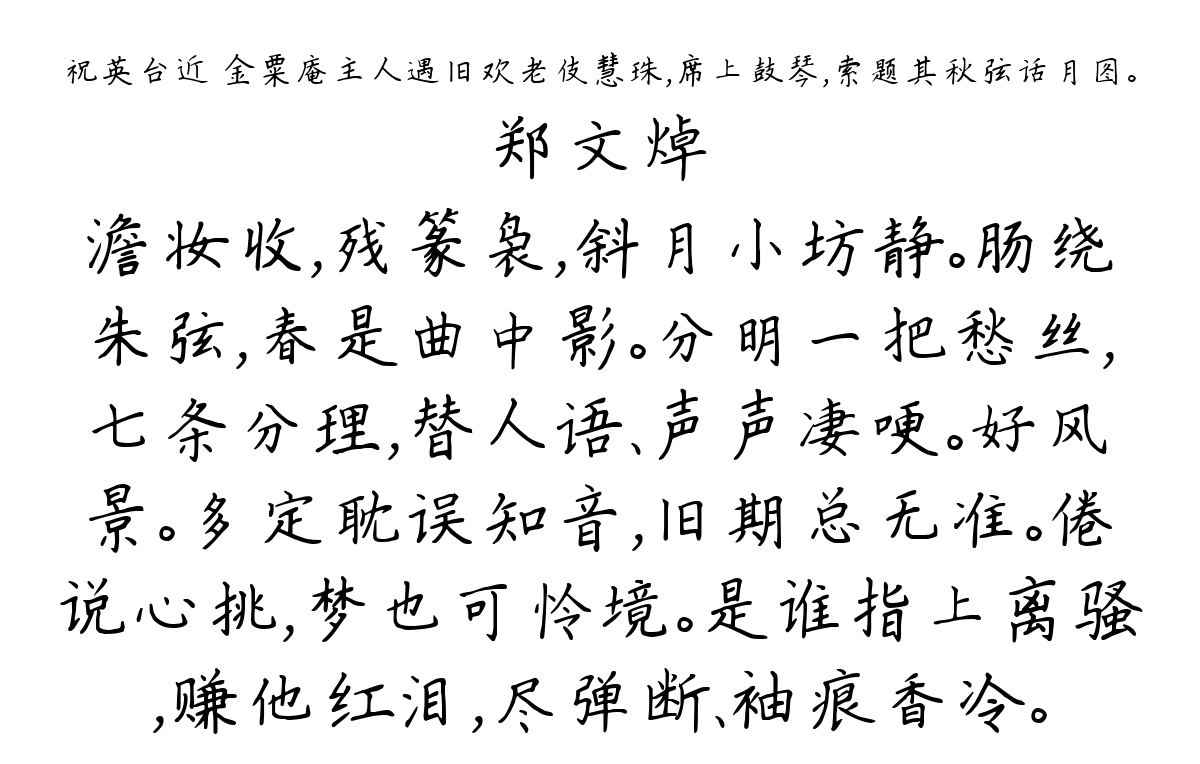 祝英台近 金粟庵主人遇旧欢老伎慧珠,席上鼓琴,索题其秋弦话月图。
郑文焯
澹妆收,残篆袅,斜月小坊静。肠绕
朱弦,春是曲中影。分明一把愁丝,
七条分理,替人语、声声凄哽。好风
景。多定耽误知音,旧期总无准。倦
说心挑,梦也可怜境。是谁指上离骚
,赚他红泪,尽弹断、袖痕香冷。